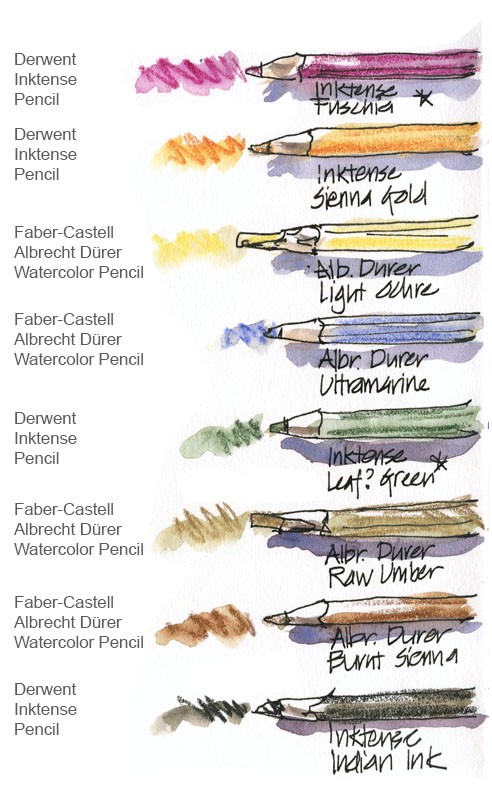 Derwent
Inktense
Pencil
Inktense
Fuschia *
Derwent
Inktense
Pencil
Inktense
Sienna Gold
Faber-Castell
Albrecht Dürer
Watercolor Pencil
Alb. Durer
Light Ochre
Faber-Castell
Albrecht Dürer
Watercolor Pencil
Albr. Durer
Ultramarine
Derwent
Inktense
Pencil
Inktense
Leaf? Green *
Faber-Castell
Albrecht Dürer
Watercolor Pencil
Albr. Durer
Raw Umber
Faber-Castell
Albrecht Dürer
Watercolor Pencil
Albr. Durer
Burnt Sienna
Derwent
Inktense
Pencil
Inktense
Indian Ink